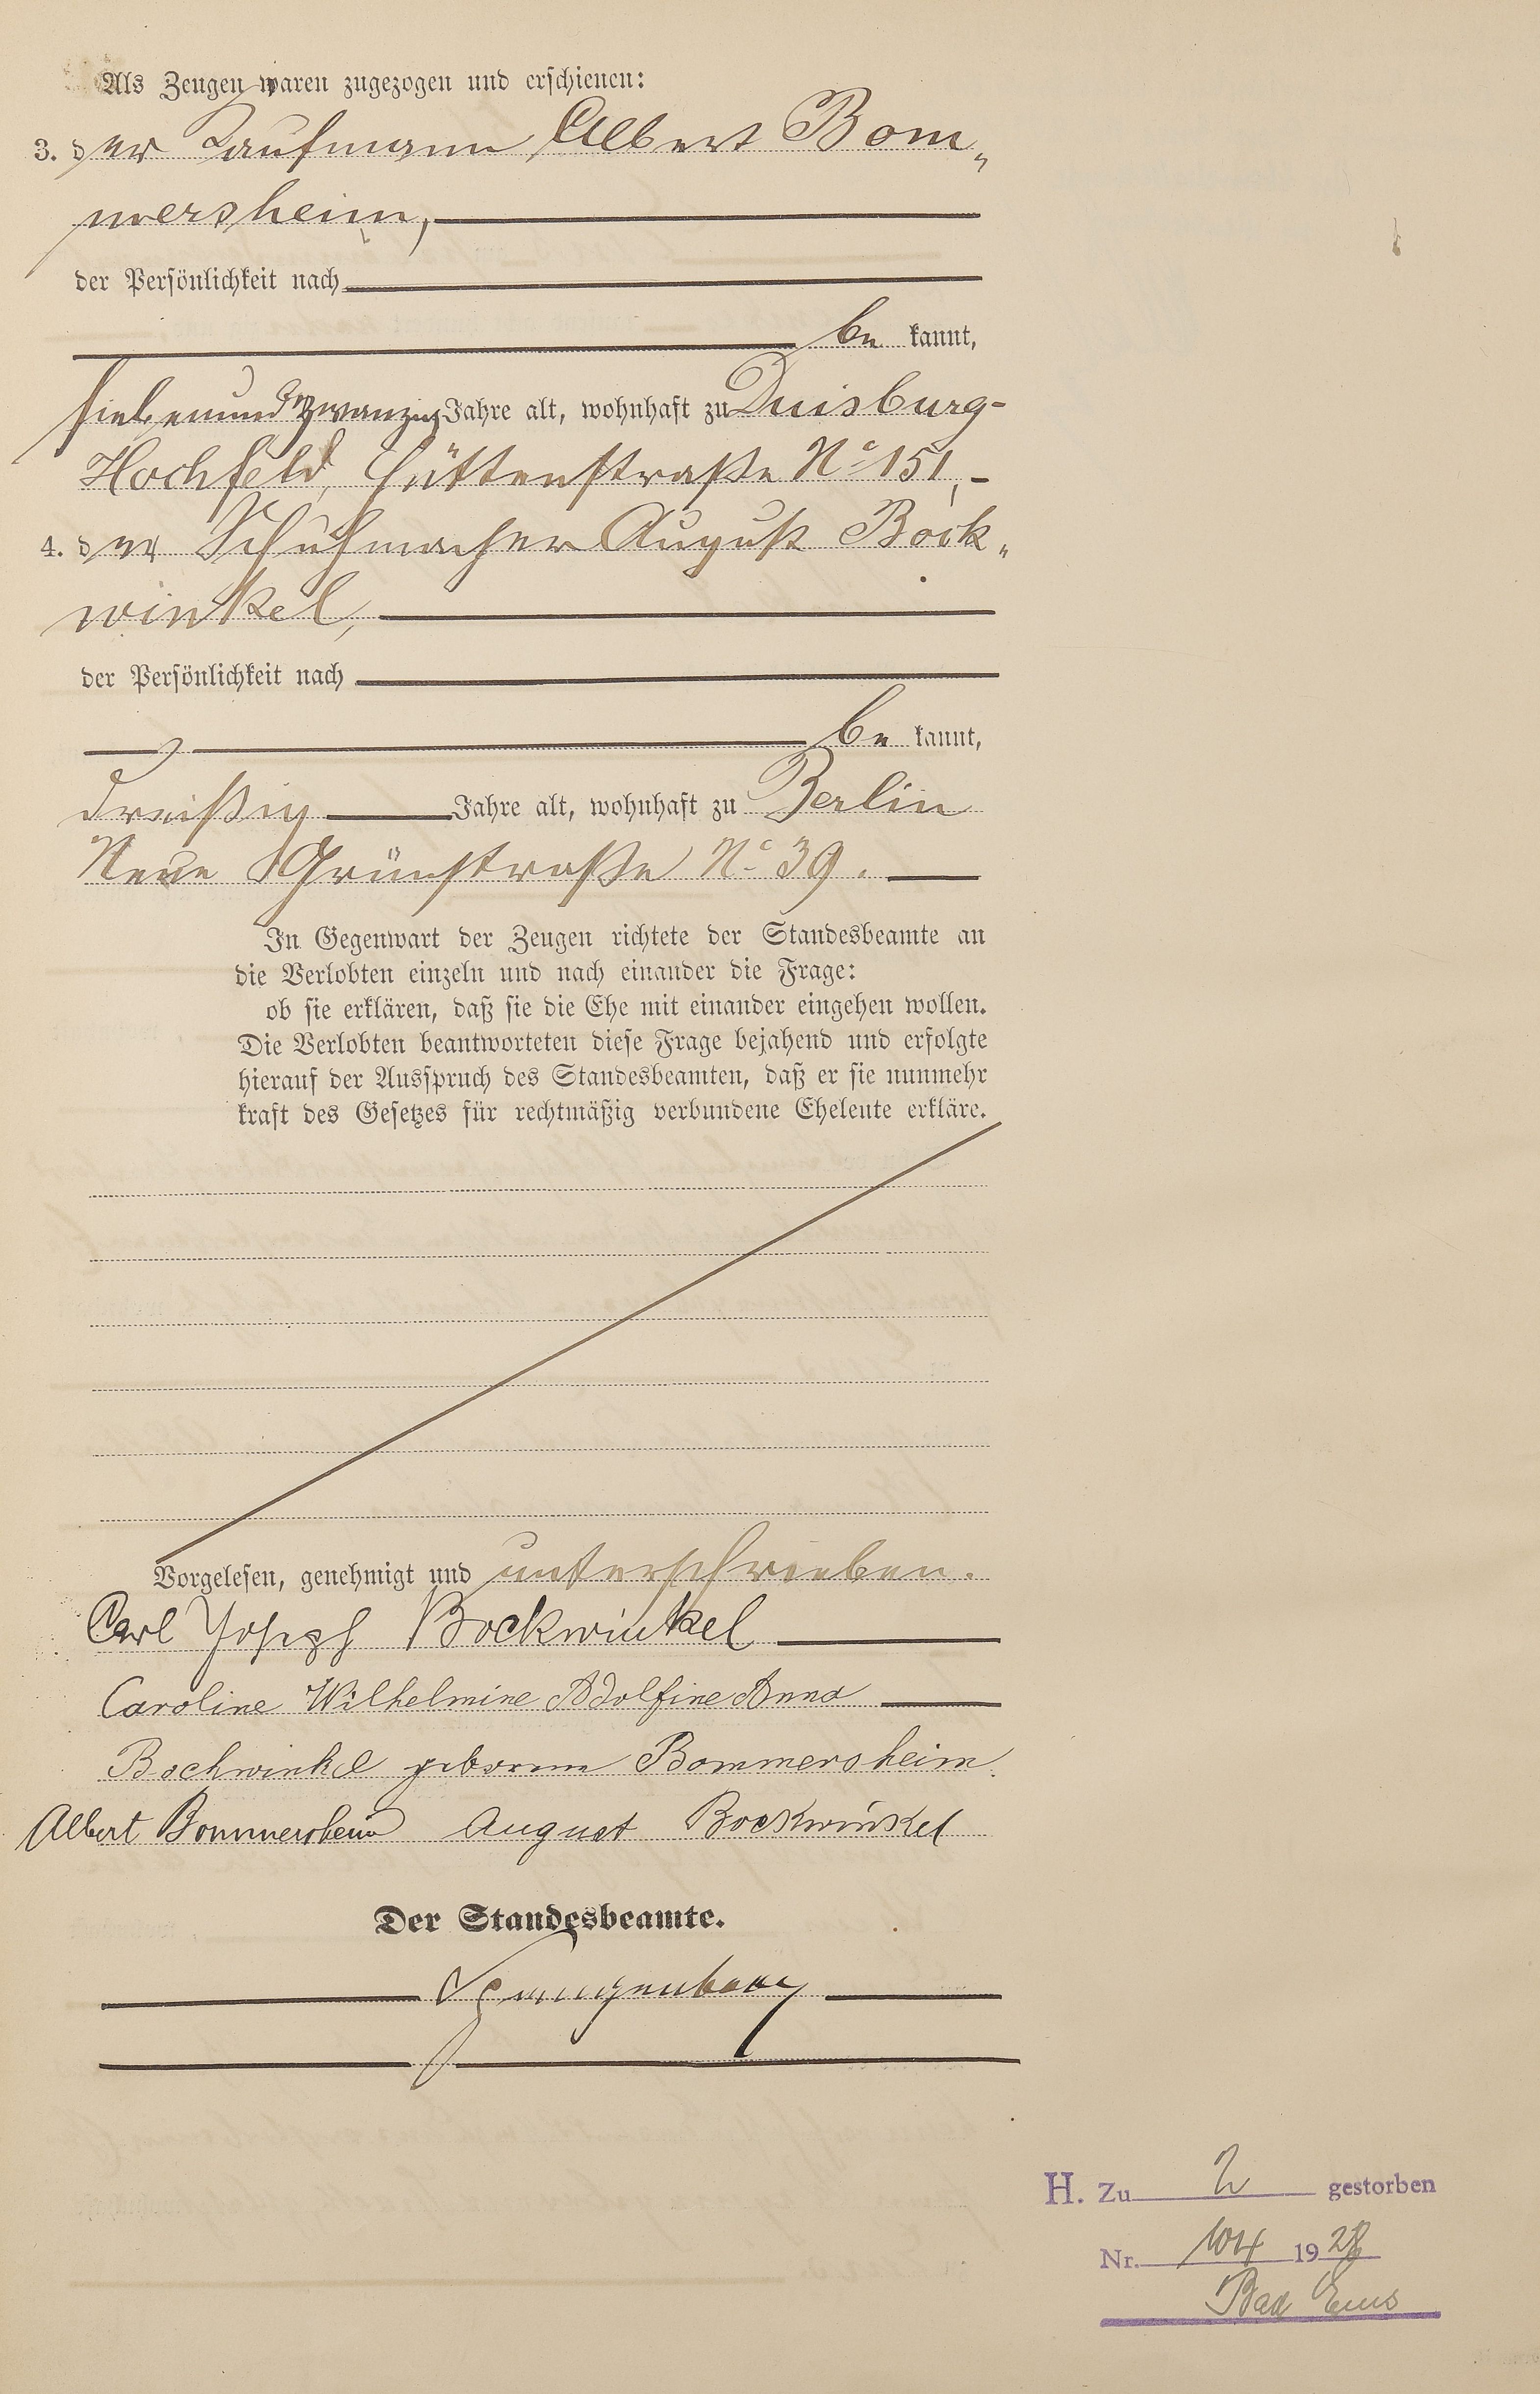 Als Zeugen waren zugezogen und erschienen:
3. der Kaufmann Albert Bom„
mersheim,
der Persönlichkeit nach
be kannt,
siebenundzwanzig Jahre alt, wohnhaft zu Duisburg-
Hochfeld, Hüttenstraße No 151,-
4. der Schuhmacher August Bock„
winkel,
der Persönlichkeit nach
be kannt,
dreißig Jahre alt, wohnhaft zu Berlin
Neue Grünstraße No 39.
In Gegenwart der Zeugen richtete der Standesbeamte an
die Verlobten einzeln und nach einander die Frage:
ob sie erklären, daß sie die Ehe mit einander eingehen wollen.
Die Verlobten beantworteten diese Frage bejahend und erfolgte
hierauf der Ausspruch des Standesbeamten, daß er sie nunmehr
kraft des Gesetzes für rechtmäßig verbundene Eheleute erkläre.
Vorgelesen, genehmigt und unterschrieben.
Carl Joseph Bockwinkel
Caroline Wilhelmine Adolfine Anna
Bockwinkel geborene Bommersheim.
Albert Bommersheim August Bockwinkel
Der Standesbeamte.
H. Zu 2 gestorben
Nr. 104 1928
Bad Ems